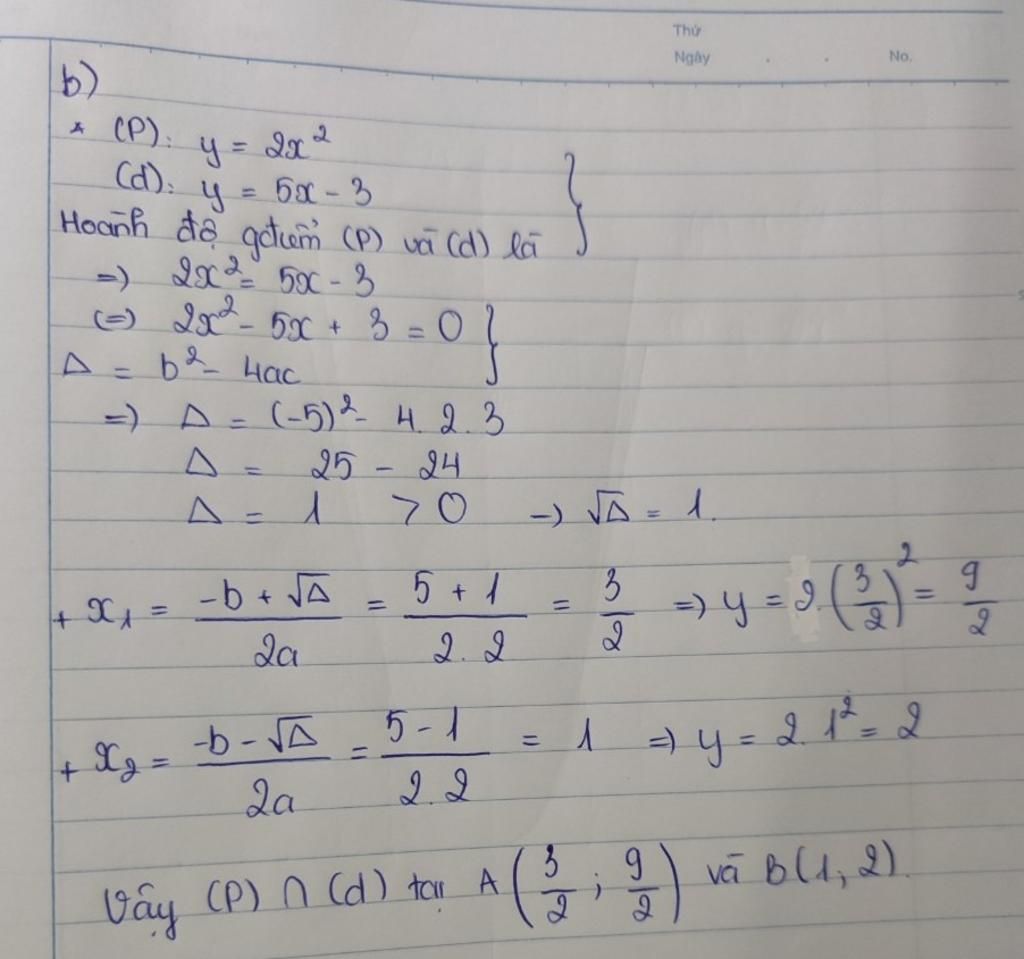 Thứ
Ngày . . No.
b)
* (P): y = 2x²
(d): y = 5x - 3
Hoành độ gđiểm (P) và (d) là
=> 2x² = 5x - 3
(=) 2x² - 5x + 3 = 0
Δ = b² - 4ac
=> Δ = (-5)² - 4.2.3
Δ = 25 - 24
Δ = 1 > 0 -> √Δ = 1.
+ x₁ = (-b + √Δ)/(2a) = (5 + 1)/(2.2) = 3/2 => y = 2.(3/2)² = 9/2
+ x₂ = (-b - √Δ)/(2a) = (5 - 1)/(2.2) = 1 => y = 2.1² = 2
Vậy (P) ∩ (d) tại A(3/2; 9/2) và B(1, 2).